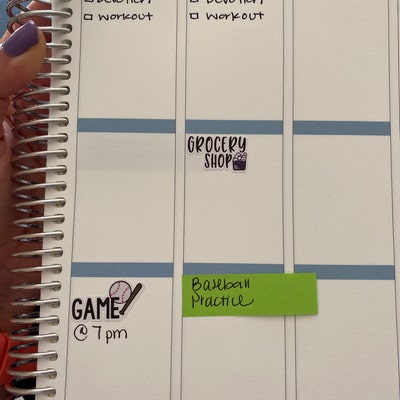 devotion
devotion
□ workout
□ workout
GROCERY
SHOP
GAME
@ 7pm
Baseball
Practice